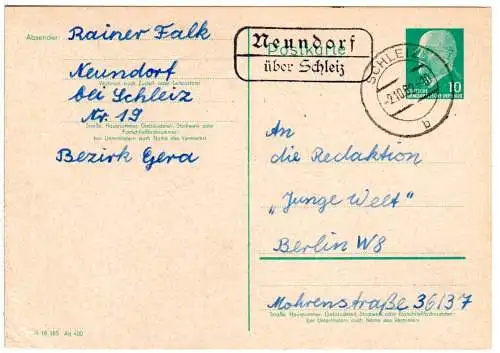 Absender:
Rainer Falk
Neundorf
Wohnort, auch Zustell- oder Leitpostamt
bei Schleiz
Nr. 19
Straße, Hausnummer, Gebäudeteil, Stockwerk oder
Postschließfachnummer;
bei Untermietern auch Name des Vermieters
Bezirk Gera
Postkarte
Neundorf
über Schleiz
SCHLEIZ
b
10
DEUTSCHE
DEMOKRATISCHE REPUBLIK
An
die Redaktion
„Junge Welt"
Berlin W8
Mohrenstraße 36/37
Straße, Hausnummer, Gebäudeteil, Stockwerk oder Postschließfachnummer;
bei Untermietern auch Name des Vermieters
III 18 185 Ag 400